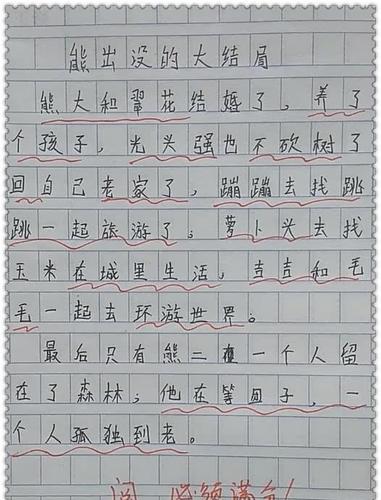 熊出没的大结局
熊大和翠花结婚了，养了
个孩子，光头强也不砍树了
回自己老家了，蹦蹦去找跳
跳一起旅游了；萝卜头去找
玉米在城里生活，吉吉和毛
毛一起去环游世界。
最后只有熊二一个人留
在了森林；他在等团子，一
个人孤独到老。
阅 必须满分！